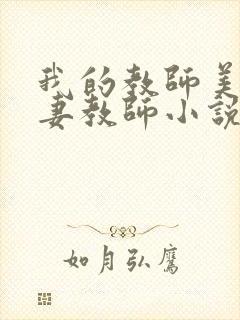 我的教師美
妻教師小說
如月弘鷹